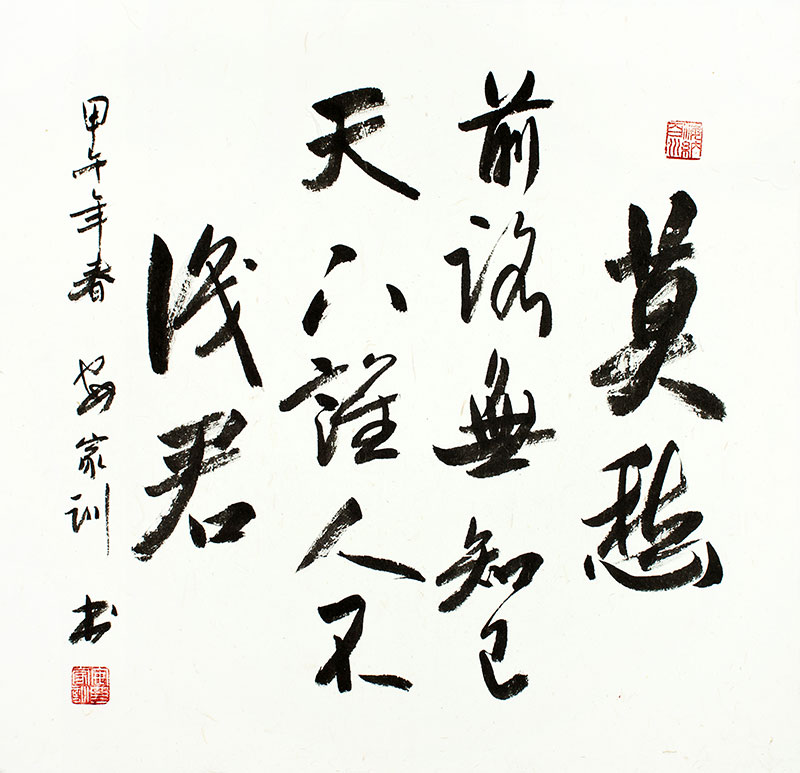 海納百川
莫愁
前路無知己
天下誰人不
識君
甲午年春 家训 书